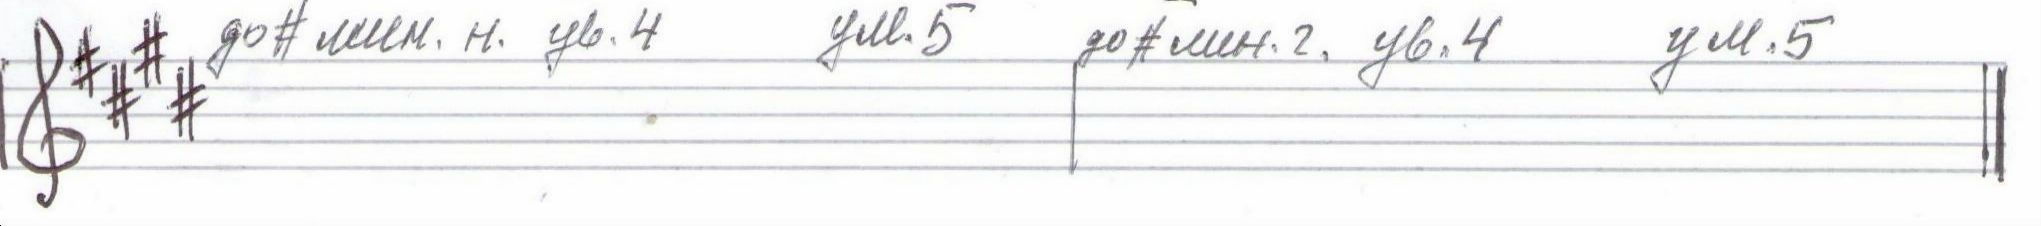 до# мин. н. ув. 4 ум. 5 до# мин. г. ув. 4 ум. 5